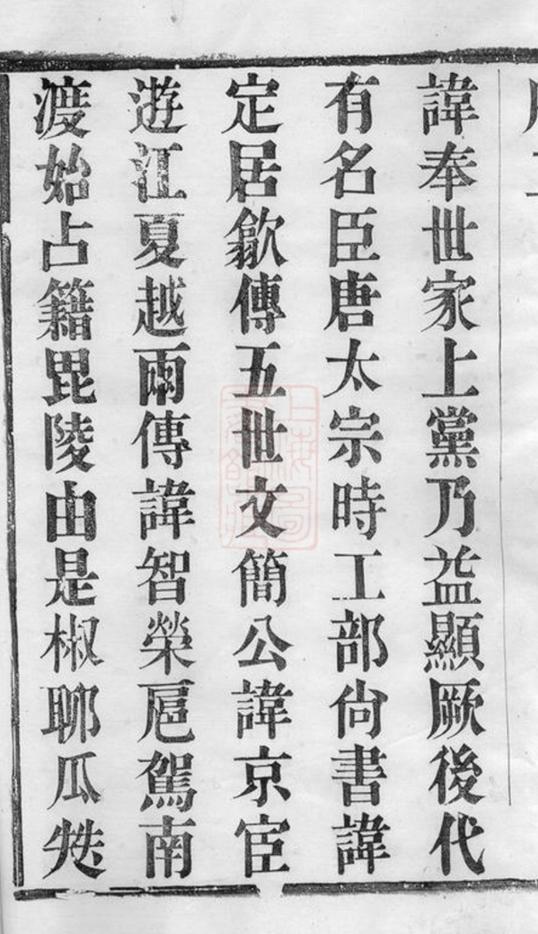 諱奉世家上黨乃益顯厥後代
有名臣唐太宗時工部尙書諱
定居歙傳五世文簡公諱京宦
遊江夏越兩傳諱智榮扈駕南
渡始占籍毘陵由是椒聊瓜瓞